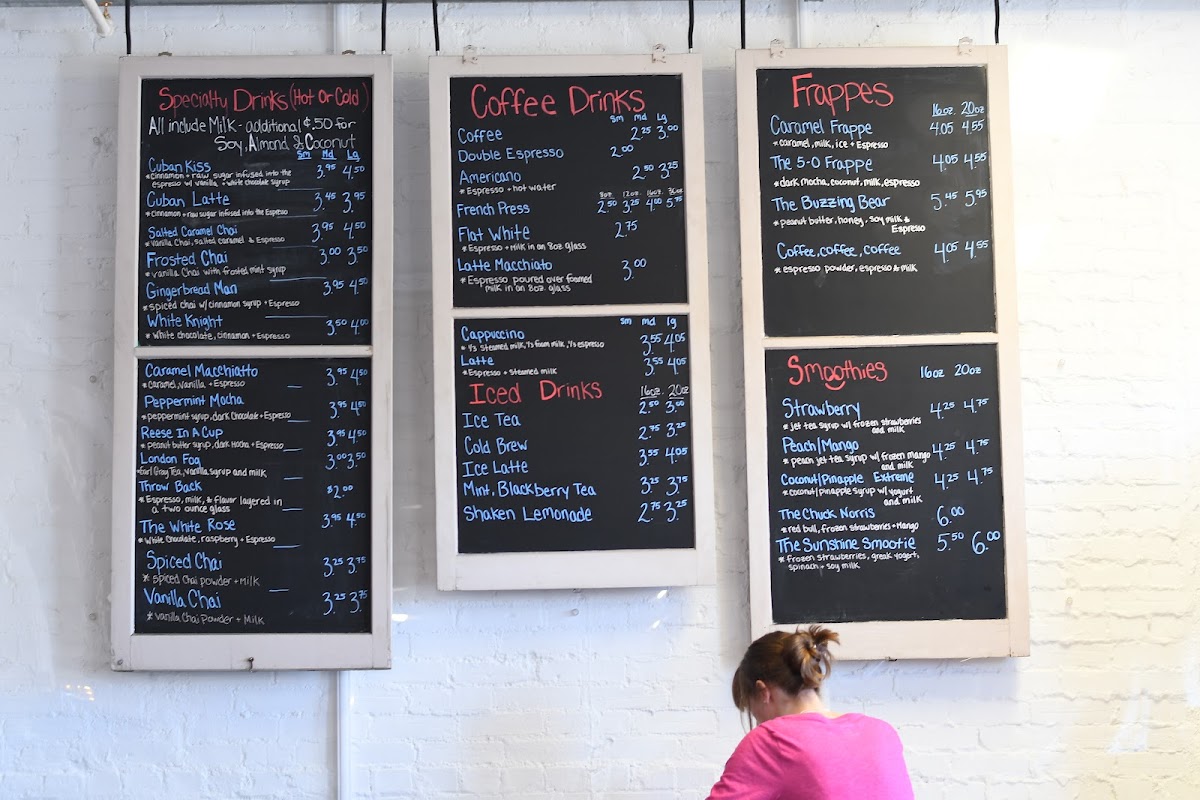 Specialty Drinks (Hot Or Cold)
All include Milk - additional $.50 for
Soy, Almond & Coconut
Sm Md Lg
Cuban Kiss 3.95 4.50
*cinnamon + raw sugar infused into the
espresso w/ vanilla + white chocolate syrup
Cuban Latte 3.45 3.95
*cinnamon + raw sugar infused into the Espresso
Salted Caramel Chai 3.95 4.50
*Vanilla Chai, salted caramel & Espresso
Frosted Chai 3.00 3.50
*vanilla Chai with frosted mint syrup
Gingerbread Man 3.95 4.50
*spiced chai w/ cinnamon syrup + Espresso
White Knight 3.50 4.00
* white chocolate, cinnamon + Espresso
Caramel Macchiatto 3.95 4.50
*Caramel, Vanilla + Espresso
Peppermint Mocha 3.95 4.50
*peppermint syrup, dark Chocolate + Espresso
Reese In A Cup 3.95 4.50
*peanut butter syrup, dark Mocha + Espresso
London Fog 3.00 3.50
*Earl Gray Tea, Vanilla syrup and milk
Throw Back $2.00
* Espresso, milk, & flavor layered in
a two ounce glass
The White Rose 3.95 4.50
* White Chocolate, raspberry + Espresso
Spiced Chai 3.25 3.75
* Spiced Chai powder + Milk
Vanilla Chai 3.25 3.75
* Vanilla Chai Powder + Milk
Coffee Drinks
Sm Md Lg
Coffee 2.25 3.00
Double Espresso 2.00
Americano 2.50 3.25
* Espresso + hot water
8oz. 12oz. 16oz. 36oz
French Press 2.50 3.25 4.00 5.75
Flat White 2.75
* Espresso + Milk in an 8oz glass
Latte Macchiato 3.00
* Espresso poured over foamed
milk in an 8oz glass
Sm md lg
Cappuccino 3.55 4.05
* 1/3 steamed milk, 1/3 foam milk, 1/3 espresso
Latte 3.55 4.05
*Espresso + steamed milk
Iced Drinks 16oz. 20oz
Ice Tea 2.50 3.00
Cold Brew 2.75 3.25
Ice Latte 3.55 4.05
Mint, Blackberry Tea 3.25 3.75
Shaken Lemonade 2.75 3.25
Frappes
16oz. 20oz
Caramel Frappe 4.05 4.55
* caramel, milk, ice + Espresso
The 5-0 Frappe 4.05 4.55
*dark mocha, coconut, milk, espresso
The Buzzing Bear 5.45 5.95
* peanut butter, honey, soy milk &
Espresso
Coffee, coffee, coffee 4.05 4.55
* espresso powder, espresso & milk
Smoothies 16oz 20oz
Strawberry 4.25 4.75
* jet tea syrup w/ frozen strawberries
and milk
Peach/Mango 4.25 4.75
* peach jet tea syrup w/ frozen mango
and milk
Coconut/Pineapple Extreme 4.25 4.75
*coconut/pineapple syrup w/ yogurt
and milk
The Chuck Norris 6.00
*red bull, frozen strawberries + Mango
The Sunshine Smootie 5.50 6.00
* frozen strawberries, greak yogert,
spinach + soy milk